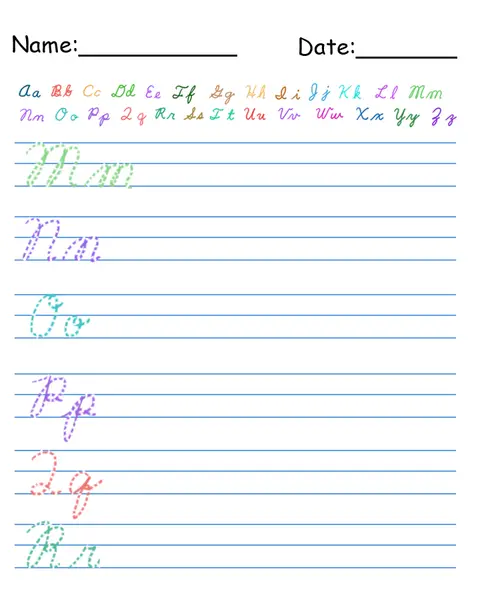 Name:____________ Date:________
Aa Bb Cc Dd Ee Ff Gg Hh Ii Jj Kk Ll Mm
Nn Oo Pp Qq Rr Ss Tt Uu Vv Ww Xx Yy Zz
Mm
Nn
Oo
Pp
Qq
Rr